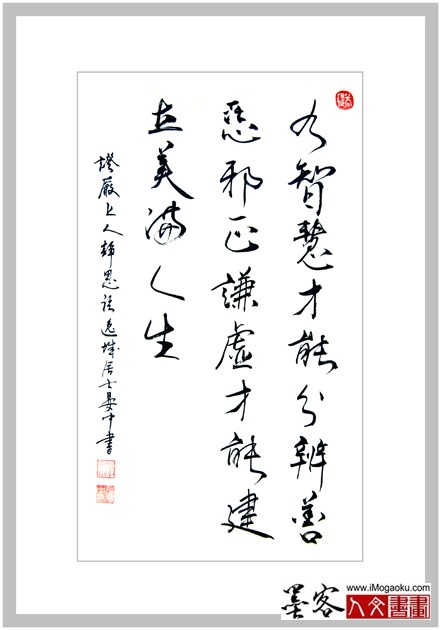 有智慧才能分辨善
惡邪正謙虛才能建
立美滿人生
證嚴上人靜思語逸城居士晏中書
墨客
www.iMogaoku.com
人文書畫